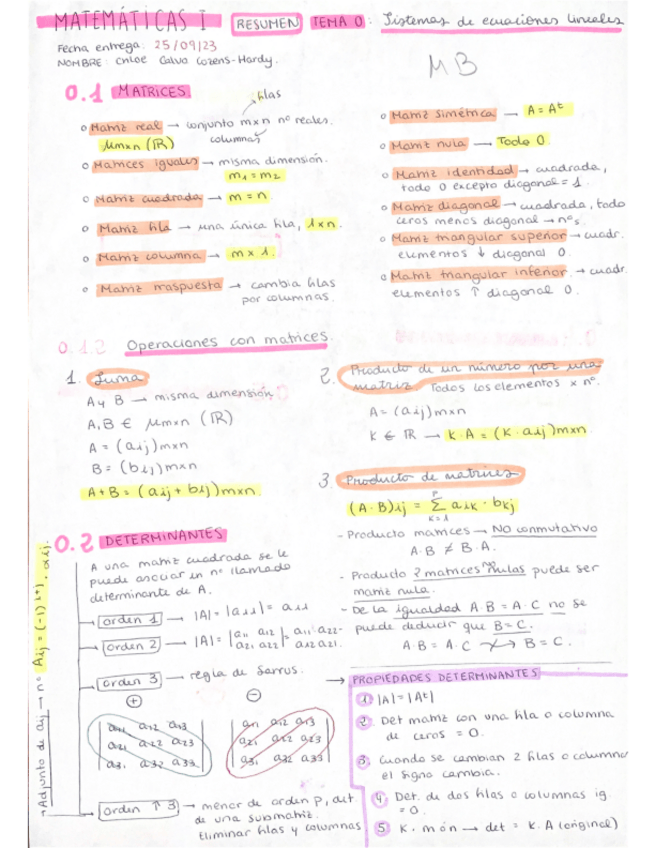 MATEMÁTICAS I RESUMEN TEMA 0: Sistemas de ecuaciones lineales
Fecha entrega: 25/09/23
NOMBRE: Chloe Calvo Cozens-Hardy.
MB
0.1 MATRICES
filas
o Matriz real → conjunto m×n nº reales.
Mm×n (ℝ) columnas
o Matrices iguales → misma dimensión.
m1 = m2
o Matriz cuadrada → m = n.
o Matriz fila → una única fila, 1×n.
o Matriz columna → m × 1.
o Matriz traspuesta → cambia filas
por columnas.
o Matriz simétrica → A = Aᵗ
o Matriz nula → Todo 0.
o Matriz identidad → cuadrada,
todo 0 excepto diagonal = 1.
o Matriz diagonal → cuadrada, todo
ceros menos diagonal → nºs.
o Matriz triangular superior → cuadr.
elementos ↓ diagonal 0.
o Matriz triangular inferior → cuadr.
elementos ↑ diagonal 0.
0.1.2 Operaciones con matrices.
1. Suma
A y B → misma dimensión
A, B ∈ Mm×n (ℝ)
A = (aij)m×n
B = (bij)m×n
A+B = (aij + bij)m×n.
2. Producto de un número por una
matriz. Todos los elementos × nº.
A = (aij)m×n
K ∈ ℝ → K·A = (K·aij)m×n.
3. Producto de matrices
(A·B)ij = Σ aik · bkj
p
k=1
- Producto matrices → NO conmutativo
A·B ≠ B·A.
- Producto 2 matrices no nulas puede ser
matriz nula.
- De la igualdad A·B = A·C no se
puede deducir que B = C.
A·B = A·C ↛ B = C.
0.2 DETERMINANTES
A una matriz cuadrada se le
puede asociar un nº llamado
determinante de A.
→ orden 1 → |A| = |a11| = a11
→ orden 2 → |A| = |a11 a12| = a11·a22-
|a21 a22| a12 a21.
→ orden 3 → regla de Sarrus.
⊕ ⊖
a11 a12 a13 a11 a12 a13
a21 a22 a23 a21 a22 a23
a31 a32 a33 a31 a32 a33
→ orden ↑ 3 → menor de orden p, det
de una submatriz.
Eliminar filas y columnas
→ Adjunto de aij → nº Aij = (-1)ⁱ⁺ʲ · αij.
→ PROPIEDADES DETERMINANTES
1 |A| = |Aᵗ|
2. Det matriz con una fila o columna
de ceros = 0.
3. Cuando se cambian 2 filas o columna
el signo cambia.
4. Det. de dos filas o columnas ig.
= 0.
5 K · m ó n → det = K · A (original)